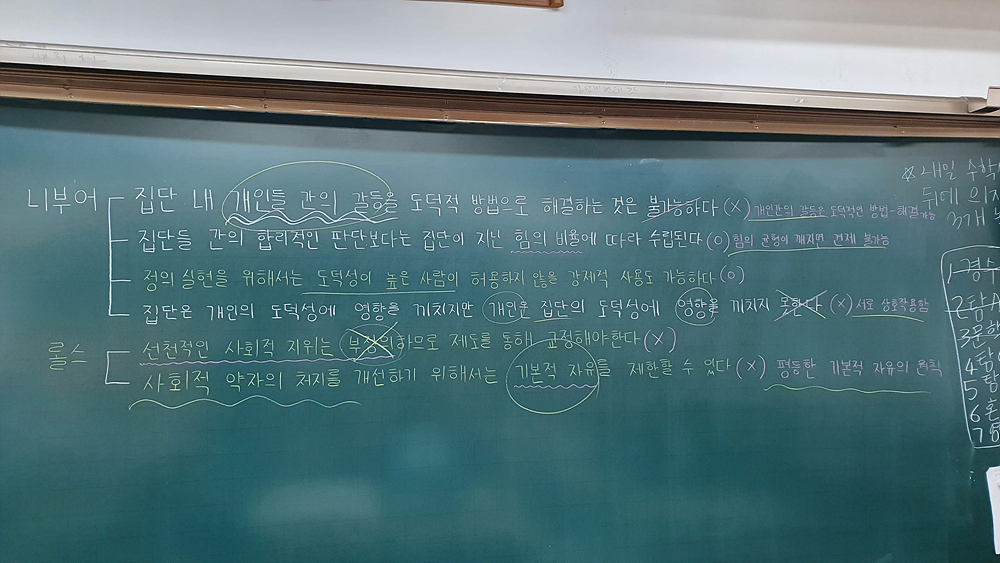 니부어
집단 내 개인들 간의 갈등을 도덕적 방법으로 해결하는 것은 불가능하다 (X) 개인간의 갈등은 도덕적인 방법-해결가능
집단들 간의 합리적인 판단보다는 집단이 지닌 힘의 비율에 따라 수립된다 (O) 힘의 균형이 깨지면 견제 불가능
정의 실현을 위해서는 도덕성이 높은 사람이 허용하지 않을 강제적 사용도 가능하다 (O)
집단은 개인의 도덕성에 영향을 끼치지만 개인은 집단의 도덕성에 영향을 끼치지 못한다 (X) 서로 상호작용함
롤스
선천적인 사회적 지위는 부정의하므로 제도를 통해 균정해야한다 (X)
사회적 약자의 처지를 개선하기 위해서는 기본적 자유를 제한할 수 있다 (X) 평등한 기본적 자유의 원칙
☆ 내일 수학
뒤에 의자
3개
1 경수
2 탐A
3 문학
4 탐
5 탐
6 혼
7